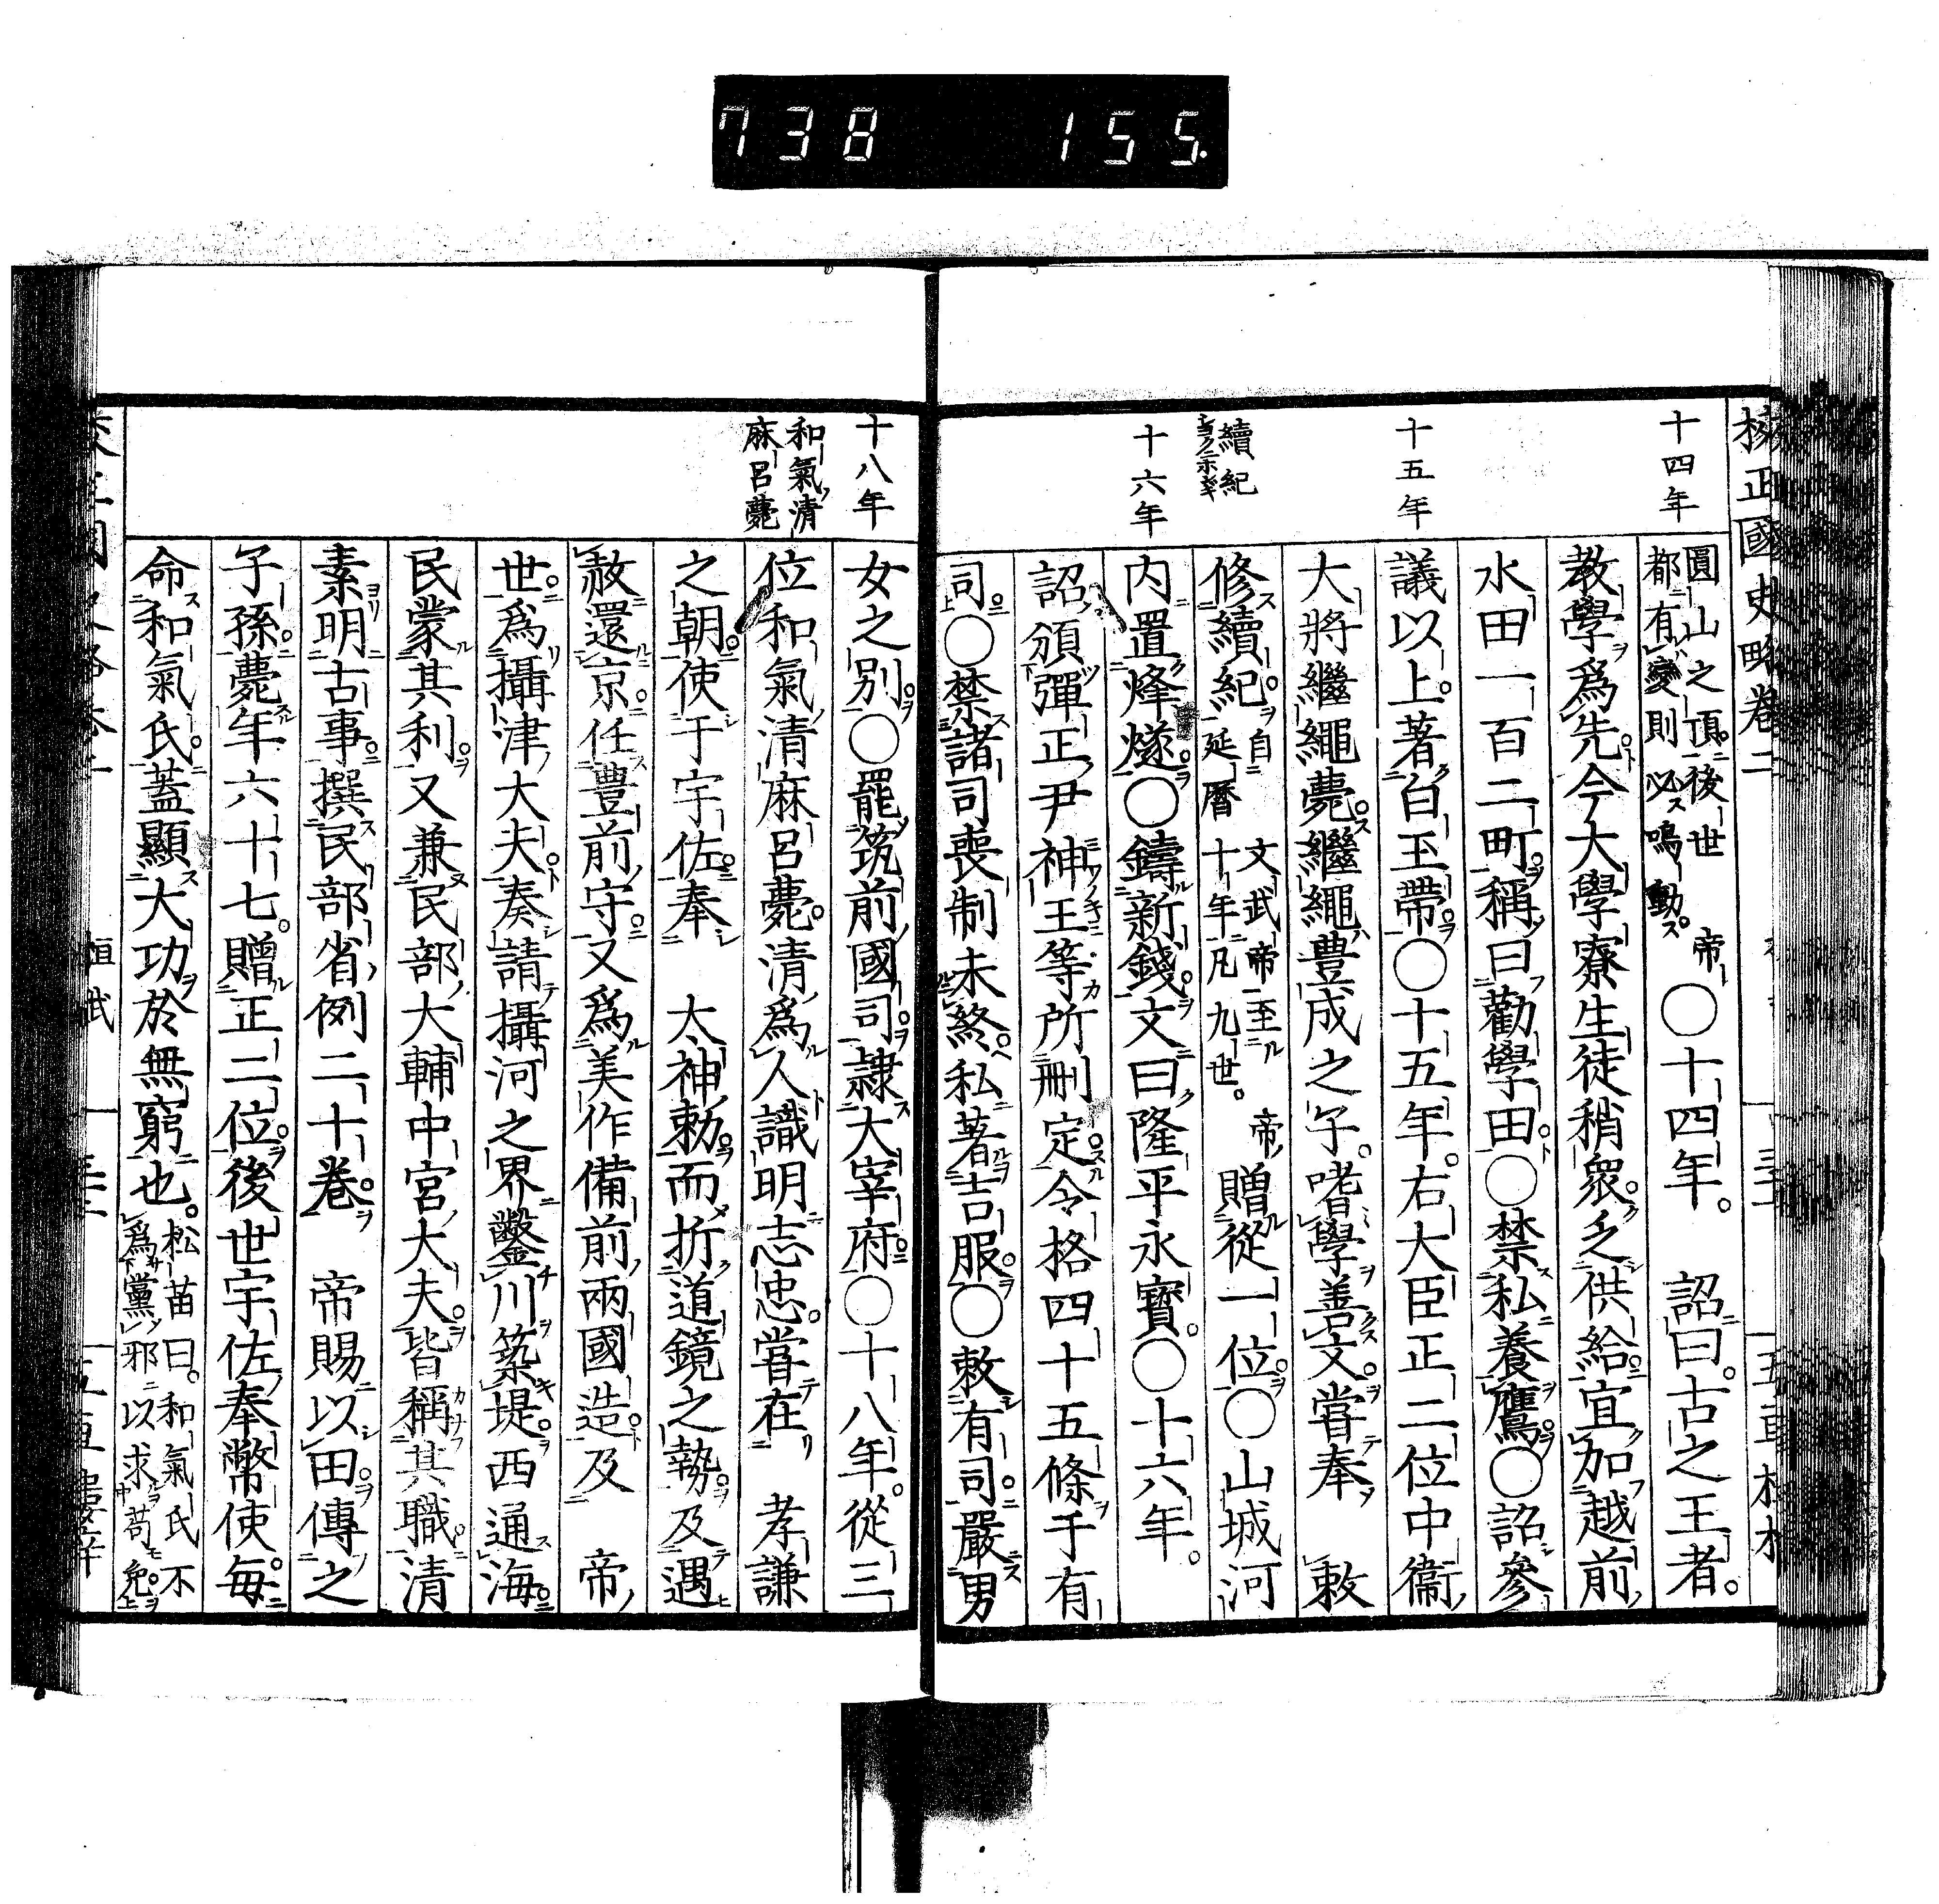 738 155.
校正國史略卷二
十四年
圓山之頂後世
都有變則必鳴動
帝○十四年。詔曰。古之王者。
教學爲先今大學寮生徒稍衆。乏供給宜加越前
水田一百二町稱曰勸學田○禁私養鷹○詔參
十五年
議以上著白玉帶○十五年。右大臣正二位中衞
大將繼繩薨繼繩豊成之子。嗜學善文嘗奉 敕
續紀
修續紀自文武帝至 帝
延曆十年凡九世。
贈從一位○山城河
十六年
内置烽燧○鑄新錢文曰隆平永寳。○十六年。
詔頒彈正尹神王等所刪定令格四十五條于有
司○禁諸司喪制未終私著吉服○敕有司嚴男
十八年
女之別○罷筑前國司隷大宰府○十八年。從三
和氣清
麻呂薨
位和氣清麻呂薨。清爲人識明志忠。嘗在 孝謙
之朝使于宇佐奉 大神勅而折道鏡之勢及遇
赦還京任豊前守又爲美作備前兩國造及 帝
世爲攝津大夫奏請攝河之界鑿川築堤西通海
民蒙其利又兼民部大輔中宮大夫皆稱其職清
素明古事撰民部省例二十卷 帝賜以田傳之
子孫薨年六十七。贈正二位後世宇佐奉幣使毎
命和氣氏蓋顯大功於無窮也。
松苗曰。和氣氏不
爲黨邪以求苟免